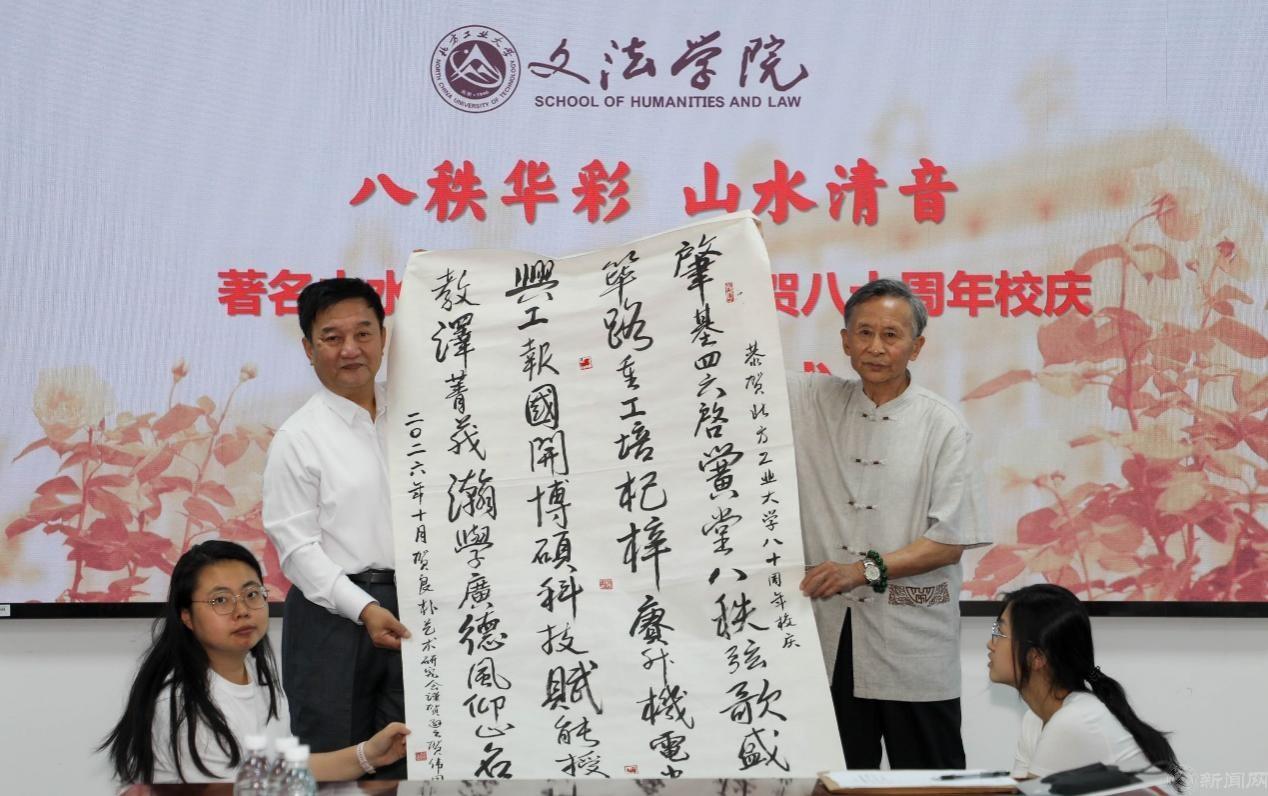 北方工业大学
NORTH CHINA UNIVERSITY OF TECHNOLOGY
文法学院
SCHOOL OF HUMANITIES AND LAW
八秩华彩 山水清音
著名 贺八十周年校庆
恭贺北方工业大学八十周年校庆
肇基四六啓黌堂八秩弦歌盛
篳路重工培杞梓賡升機電
興工報國開博碩科技賦能授
教澤菁莪瀚學廣德風仰止名
二〇二六年十月贺良朴艺术研究会谨贺
新闻网